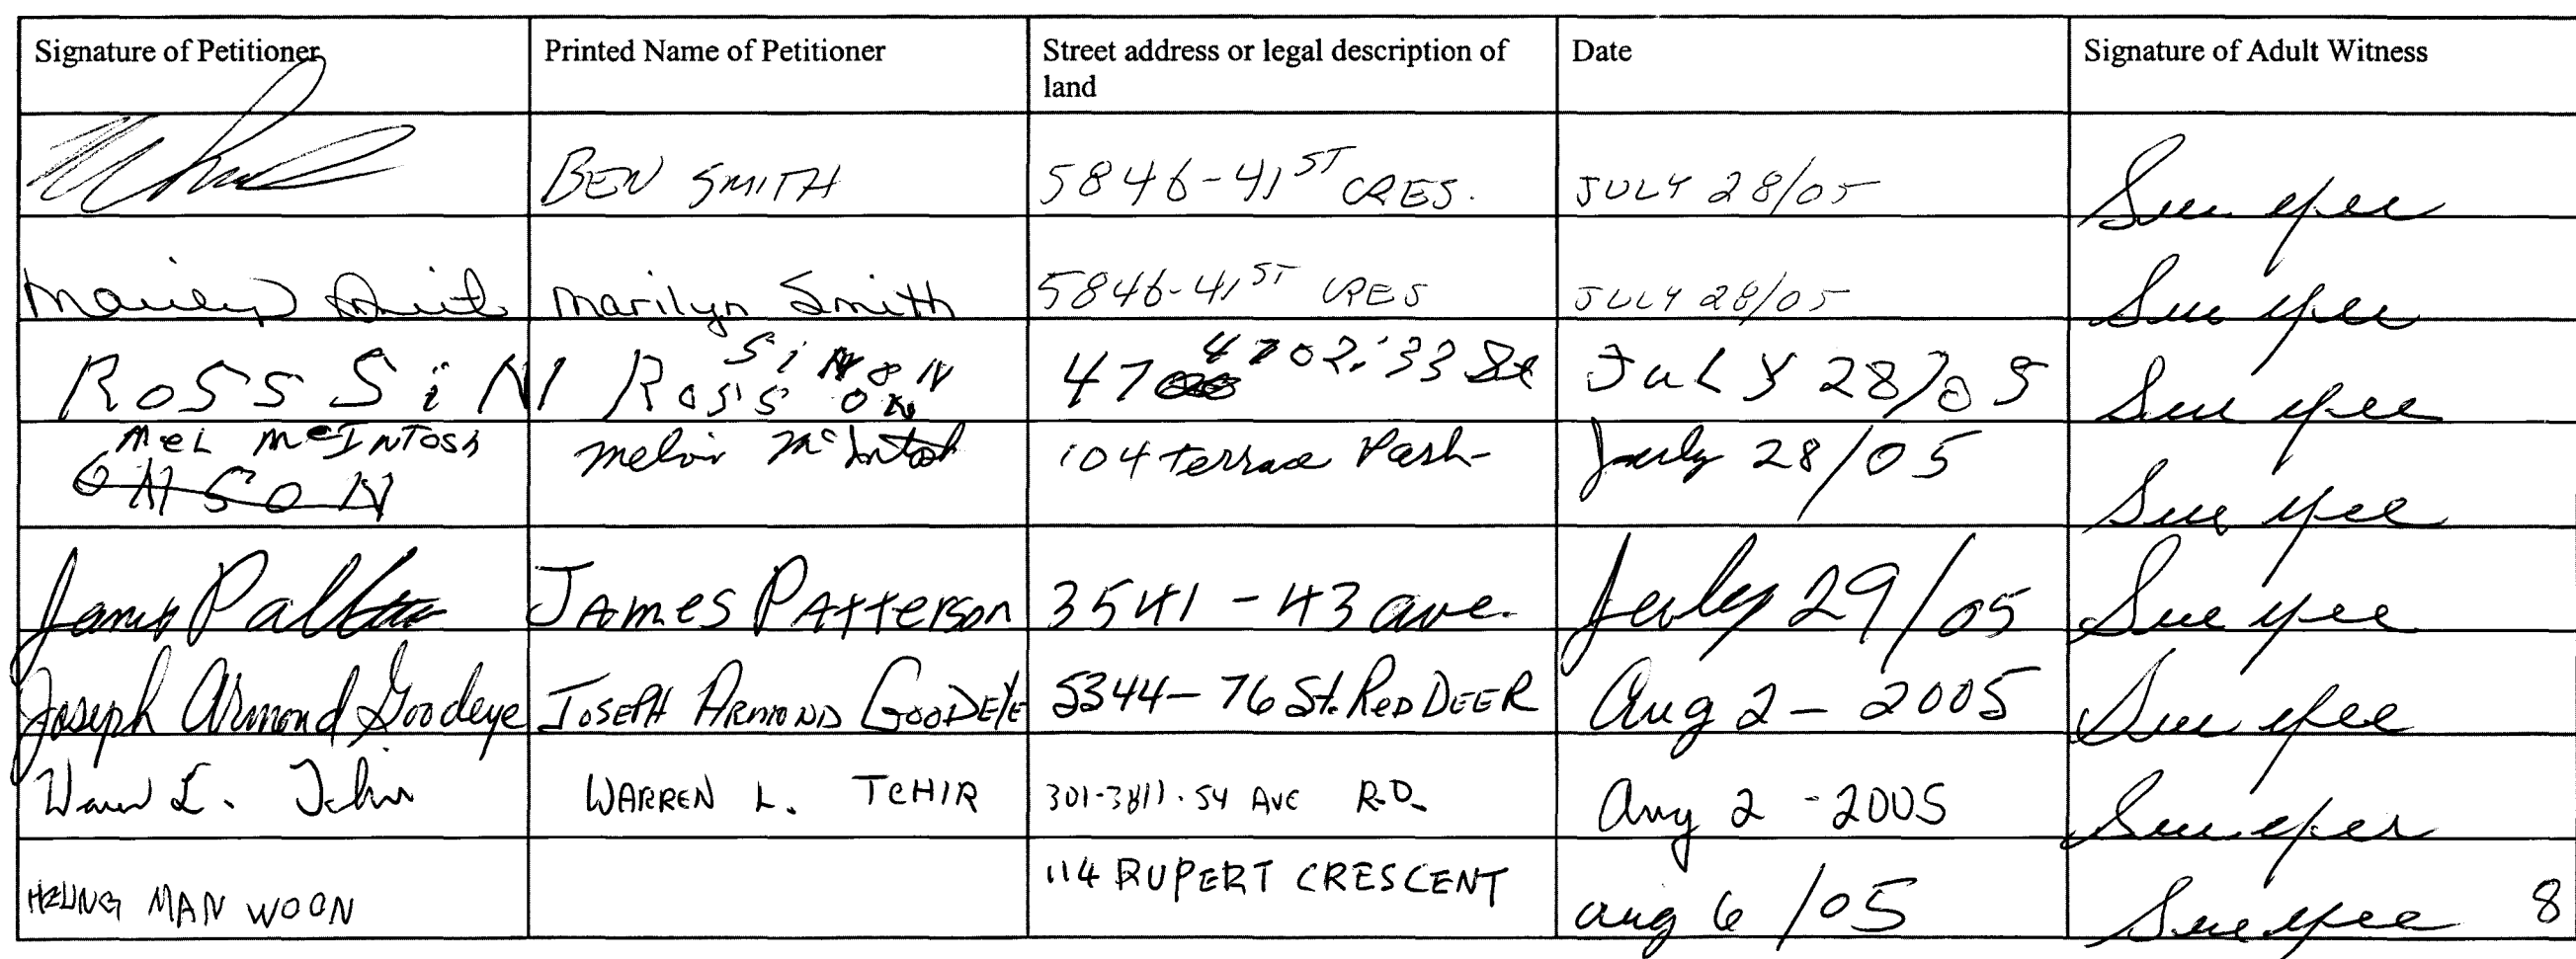 Signature of Petitioner Printed Name of Petitioner Street address or legal description of land Date Signature of Adult Witness
BEN SMITH 5846-41ST CRES. JULY 28/05 Sue Yee
Marilyn Smith Marilyn Smith 5846-41ST CRES JULY 28/05 Sue Yee
ROSS SiN ROSS 4702.33 St JuLY 28/05 Sue Yee
MeL McINTOSh melvin McIntosh 104 terrace Park July 28/05 Sue Yee
ONSON
James Patterson JAMES PATTERSON 3541-43 ave. July 29/05 Sue Yee
Joseph Armond Goodeye JOSEPH ARMOND GOODEYE 5344-76 St. RED DEER Aug 2-2005 Sue Yee
Warren L. Tchir WARREN L. TCHIR 301-3811.54 AVE R.D. Aug 2-2005 Sue Yee
HEUNG MAN WOON 114 RUPERT CRESCENT aug 6/05 Sue Yee 8